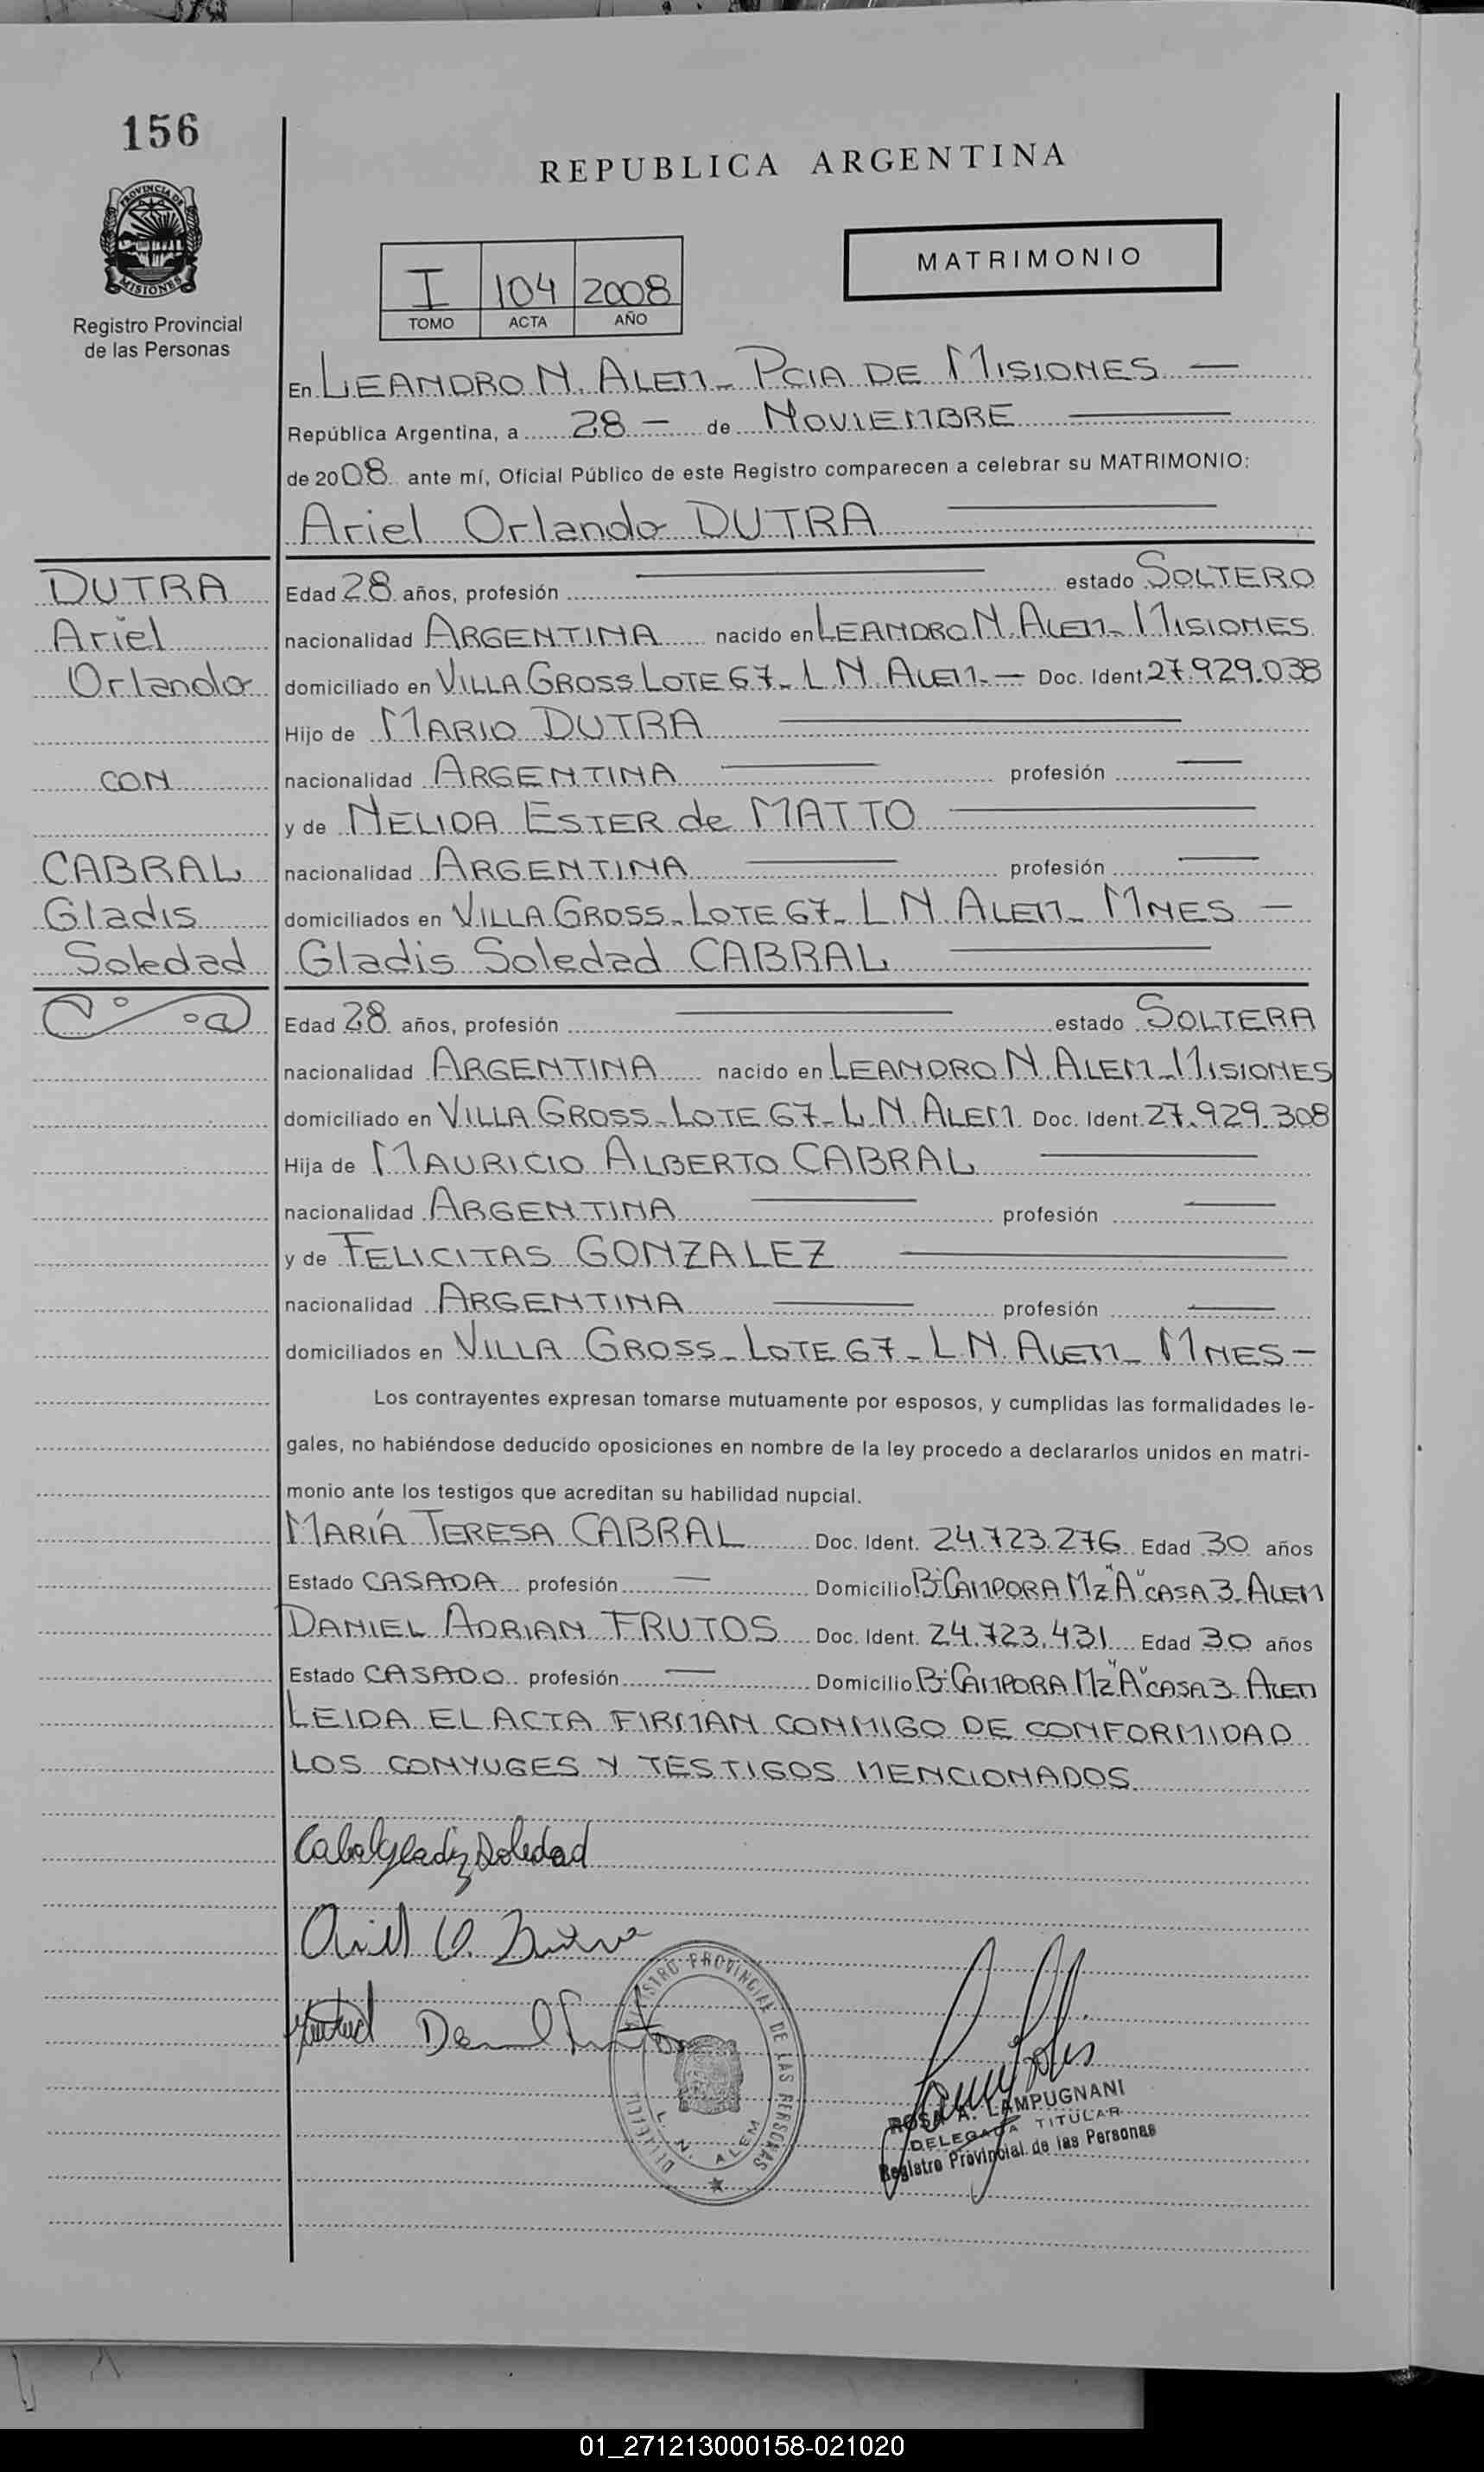 156
REPUBLICA ARGENTINA
PROVINCIA DE
MISIONES
Registro Provincial
de las Personas
MATRIMONIO
I 104 2008
TOMO ACTA AÑO
En LEANDRO N. ALEM - PCIA DE MISIONES —
República Argentina, a 28 — de NOVIEMBRE
de 2008 ante mí, Oficial Público de este Registro comparecen a celebrar su MATRIMONIO:
Ariel Orlando DUTRA
DUTRA
Ariel
Orlando
CON
CABRAL
Gladis
Soledad
Edad 28 años, profesión — estado SOLTERO
nacionalidad ARGENTINA nacido en LEANDRO N. ALEM - MISIONES
domiciliado en VILLA GROSS LOTE 67 - L N. ALEM - — Doc. Ident. 27.929.038
Hijo de MARIO DUTRA
nacionalidad ARGENTINA — profesión —
y de NELIDA ESTER de MATTO
nacionalidad ARGENTINA — profesión —
domiciliados en VILLA GROSS - LOTE 67 - L N. ALEM - MNES —
Gladis Soledad CABRAL
Edad 28 años, profesión — estado SOLTERA
nacionalidad ARGENTINA nacido en LEANDRO N. ALEM - MISIONES
domiciliado en VILLA GROSS - LOTE 67 - L. N. ALEM Doc. Ident. 27.929.308
Hija de MAURICIO ALBERTO CABRAL
nacionalidad ARGENTINA — profesión —
y de FELICITAS GONZALEZ
nacionalidad ARGENTINA — profesión —
domiciliados en VILLA GROSS - LOTE 67 - L N. ALEM - MNES —
Los contrayentes expresan tomarse mutuamente por esposos, y cumplidas las formalidades le-
gales, no habiéndose deducido oposiciones en nombre de la ley procedo a declararlos unidos en matri-
monio ante los testigos que acreditan su habilidad nupcial.
MARÍA TERESA CABRAL Doc. Ident. 24.723.276 Edad 30 años
Estado CASADA profesión — Domicilio B: CAMPORA MZ "A" CASA 3 - ALEM
DANIEL ADRIAN FRUTOS Doc. Ident. 24.723.431 Edad 30 años
Estado CASADO profesión — Domicilio B: CAMPORA MZ "A" CASA 3 ALEM
LEIDA EL ACTA FIRMAN CONMIGO DE CONFORMIDAD
LOS CONYUGES Y TESTIGOS MENCIONADOS.
Cabral Gladiz Soledad
Ariel O. Dutra
Daniel Frutos
REGISTRO PROVINCIAL DE LAS PERSONAS
L. N. ALEM
ROSA A. LAMPUGNANI
DELEGADA TITULAR
Registro Provincial de las Personas
01_271213000158-021020